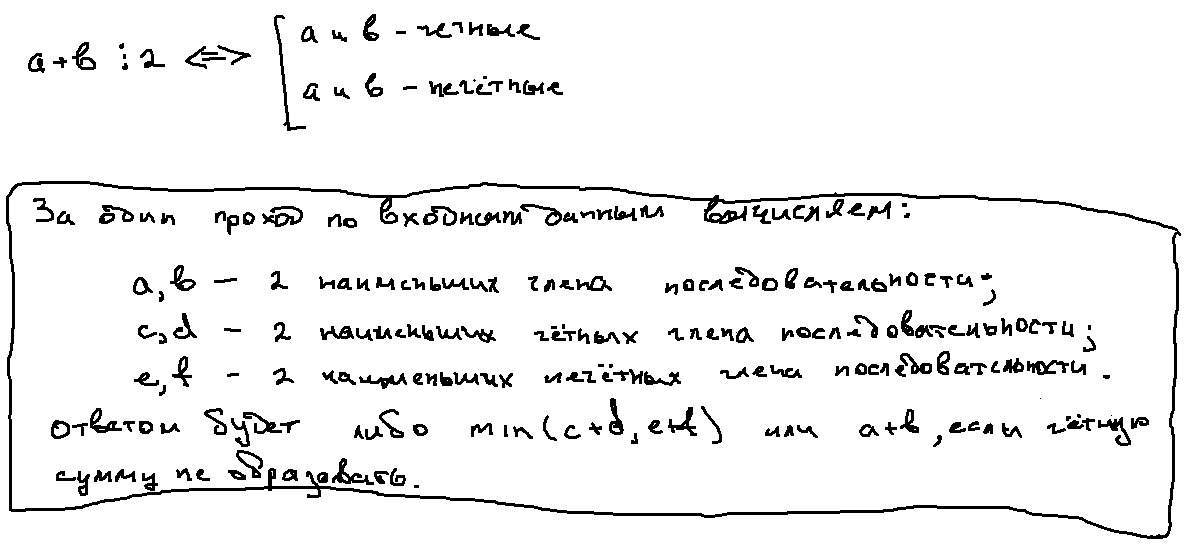 a+b ⋮ 2 <=> [ a и b - четные
a и b - нечётные
За один проход по входным данным вычисляем:
a, b - 2 наименьших члена последовательности;
c, d - 2 наименьших чётных члена последовательности;
e, f - 2 наименьших нечётных члена последовательности.
ответом будет либо min(c+d, e+f) или a+b, если чётную
сумму не образовать.